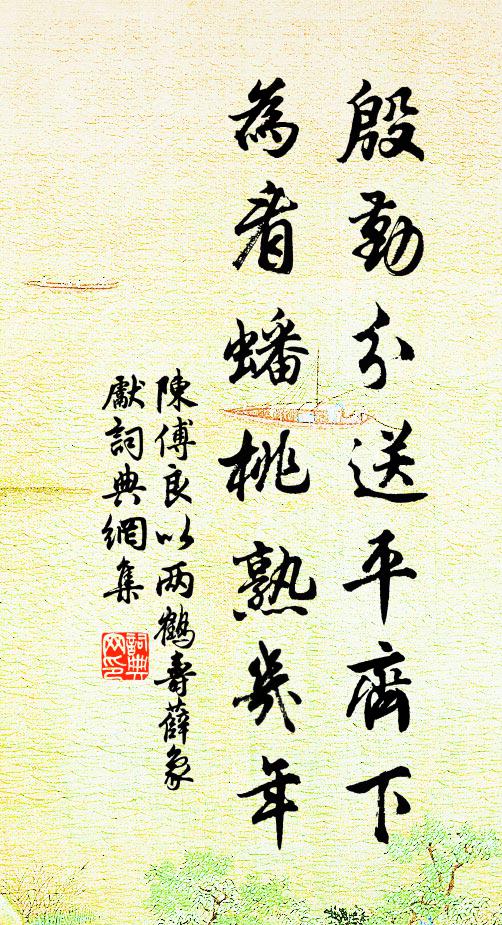 殷勤分送平齋下
為看蟠桃熟幾年
陳傅良以两鶴壽薛象
獻詞典網集
詞典网印